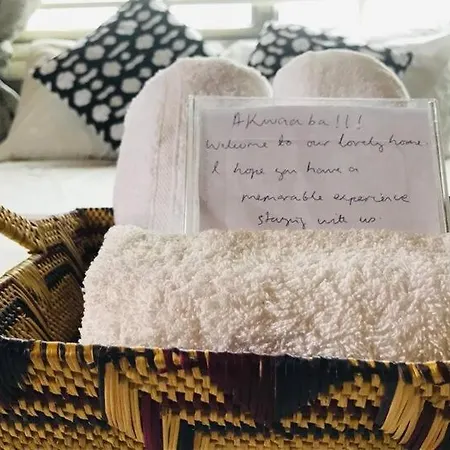 AKwaaba!!!
Welcome to our lovely home.
I hope you have a
memorable experience
staying with us.